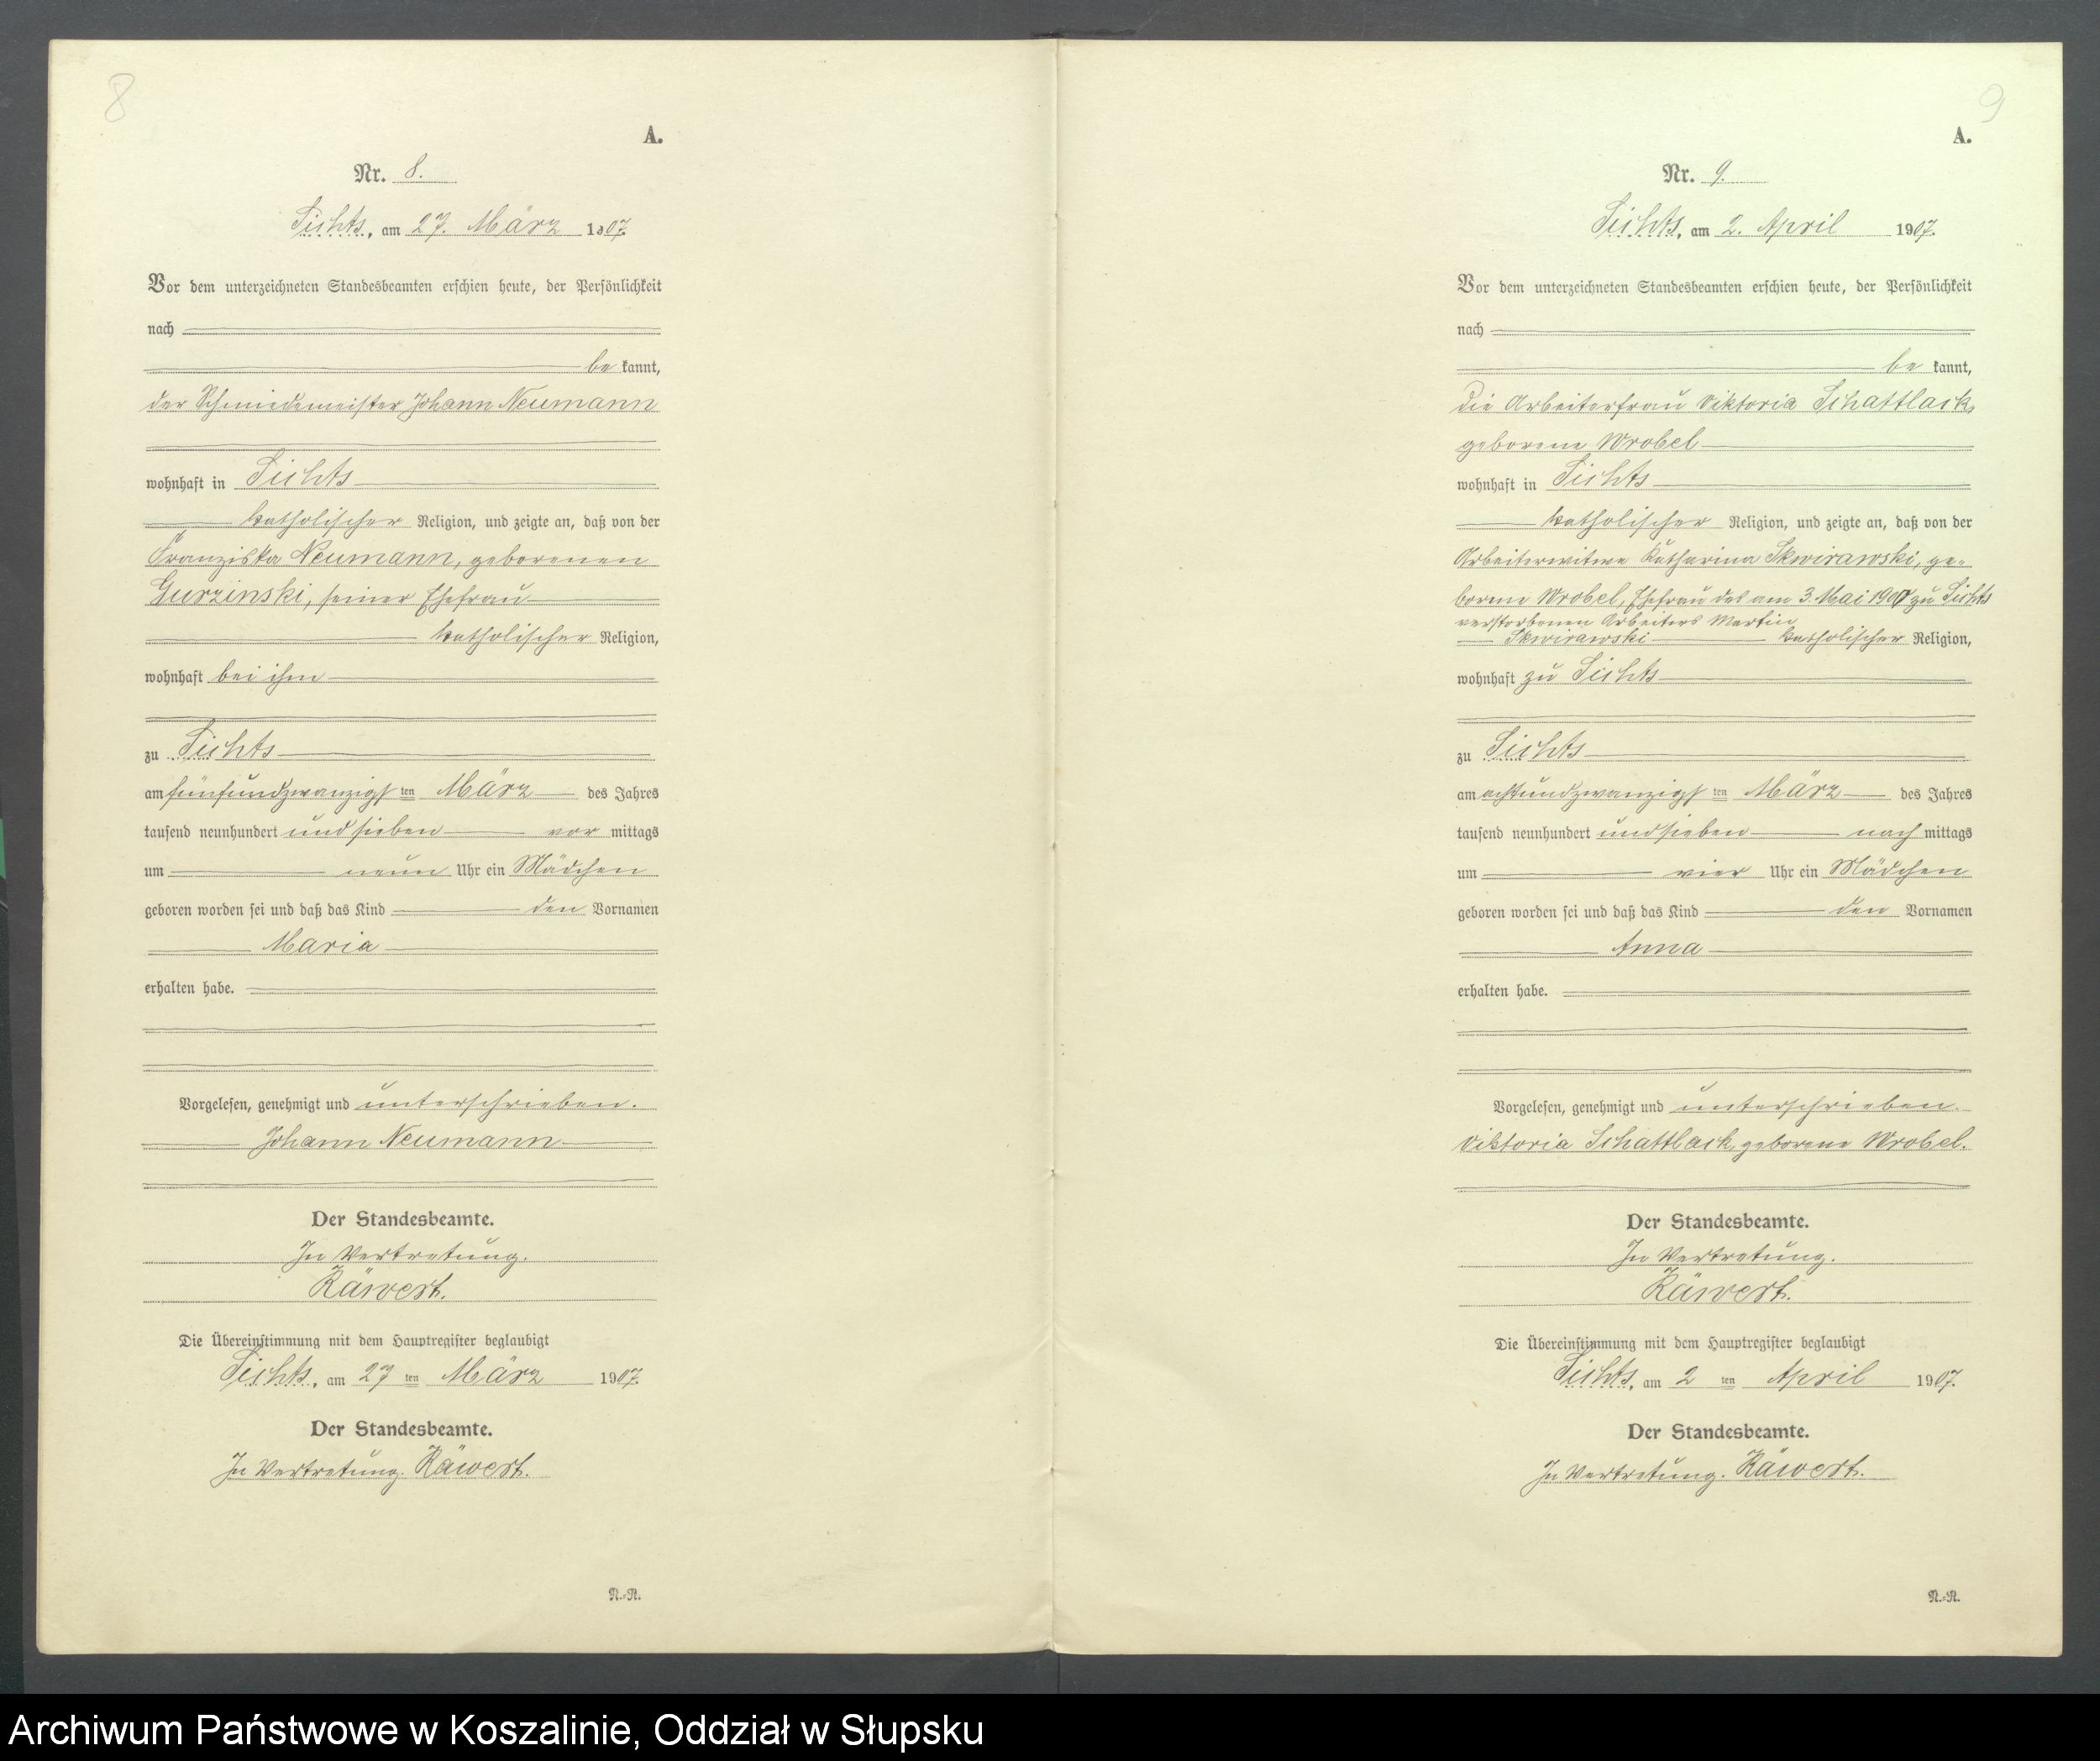 8
A.
Nr. 8.
Sichts, am 27. März 1907.
Vor dem unterzeichneten Standesbeamten erschien heute, der Persönlichkeit
nach
be kannt,
der Schmiedemeister Johann Neumann
wohnhaft in Sichts
katholischer Religion, und zeigte an, daß von der
Franziska Neumann, geborenen
Gurzinski, seiner Ehefrau
katholischer Religion,
wohnhaft bei ihm
zu Sichts
am fünfundzwanzigst ten März des Jahres
tausend neunhundert und sieben vor mittags
um neun Uhr ein Mädchen
geboren worden sei und daß das Kind den Vornamen
Maria
erhalten habe.
Vorgelesen, genehmigt und unterschrieben.
Johann Neumann
Der Standesbeamte.
In Vertretung.
Räwert.
Die Übereinstimmung mit dem Hauptregister beglaubigt
Sichts, am 27 ten März 1907.
Der Standesbeamte.
In Vertretung. Räwert.
N.-R.
9
A.
Nr. 9.
Sichts, am 2. April 1907.
Vor dem unterzeichneten Standesbeamten erschien heute, der Persönlichkeit
nach
be kannt,
die Arbeiterfrau Viktoria Schattlack,
geborene Wrobel
wohnhaft in Sichts
katholischer Religion, und zeigte an, daß von der
Arbeiterwitwe Katharina Skwirawski, ge-
borene Wrobel, Ehefrau des am 3. Mai 1900 zu Sichts
verstorbenen Arbeiters Martin
Skwirawski katholischer Religion,
wohnhaft zu Sichts
zu Sichts
am achtundzwanzigst ten März des Jahres
tausend neunhundert und sieben nach mittags
um vier Uhr ein Mädchen
geboren worden sei und daß das Kind den Vornamen
Anna
erhalten habe.
Vorgelesen, genehmigt und unterschrieben.
Viktoria Schattlack, geborene Wrobel.
Der Standesbeamte.
In Vertretung.
Räwert.
Die Übereinstimmung mit dem Hauptregister beglaubigt
Sichts, am 2 ten April 1907.
Der Standesbeamte.
In Vertretung. Räwert.
N.-R.
Archiwum Państwowe w Koszalinie, Oddział w Słupsku